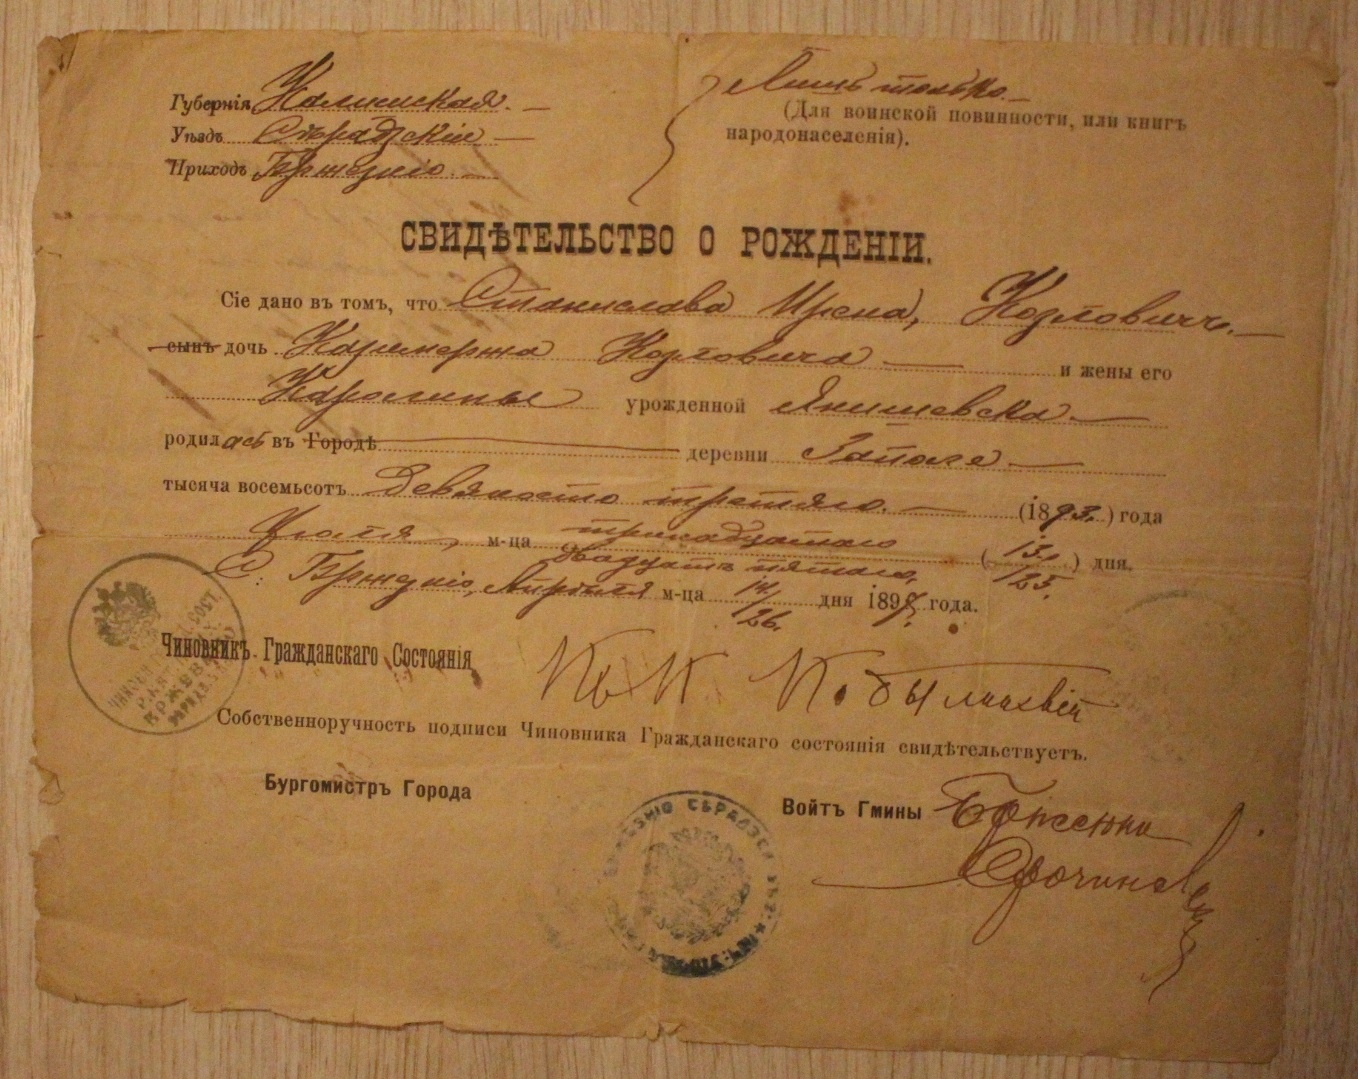 Губернія Калишская.
Уѣздъ Сѣрадзскій
Приходъ Бржезніо.
Лишь только.
(Для воинской повинности, или книгъ
народонаселенія).
СВИДѢТЕЛЬСТВО О РОЖДЕНІИ.
Сіе дано въ томъ, что Станислава Ирена,
сынъ дочь Казимержа и жены его
Каролины урожденной Янишевска
родилась въ Городѣ деревни Заполе
тысяча восемьсотъ девяносто третяго. (1893.) года
Іюля, м-ца тринадцатаго (13.) дня.
двадцать пятаго, 25.
С. Бржезніо, Апрѣля м-ца 14/26. дня 1897. года.
Чиновникъ Гражданскаго Состоянія
Собственноручность подписи Чиновника Гражданскаго состоянія свидѣтельствуетъ.
Бургомистръ Города
Войтъ Гмины